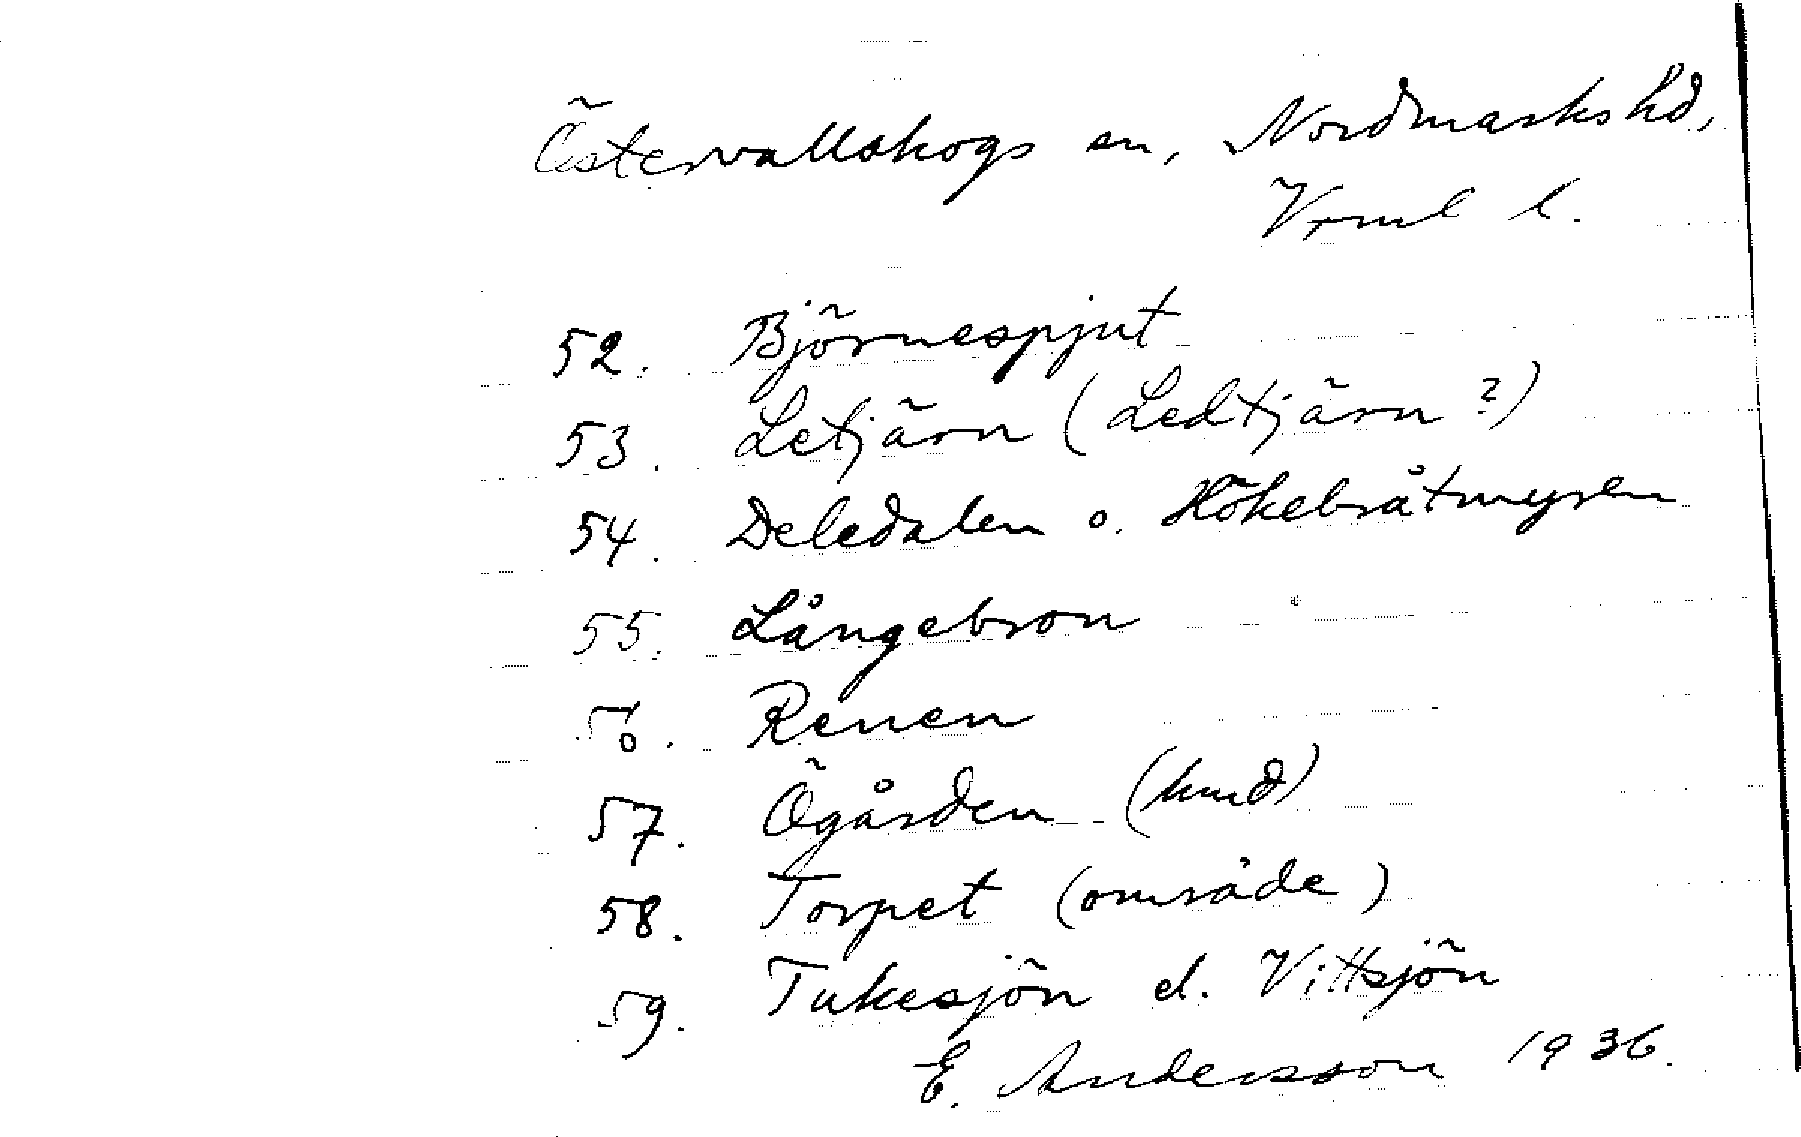 Östervallskogs sn, Nordmarks hd,
Vrml l.
52. Björnespjut
53. Letjärn (Ledtjärn?)
54. Deledalen o. Hökebråtmyren
55. Långebron
56. Renen
57. Ögården (hmd)
58. Torpet (område)
59. Tukesjön el. Vittsjön
E. Andersson 1936.